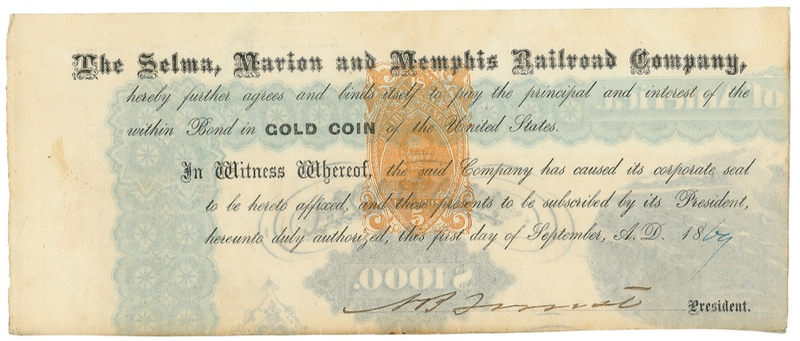 The Selma, Marion and Memphis Railroad Company,
hereby further agrees and binds itself to pay the principal and interest of the
within Bond in GOLD COIN of the United States.
In Witness Whereof, the said Company has caused its corporate seal
to be hereto affixed, and these presents to be subscribed by its President,
hereunto duly authorized, this first day of September, A. D. 1869
5
$1000.
N B Forrest President.